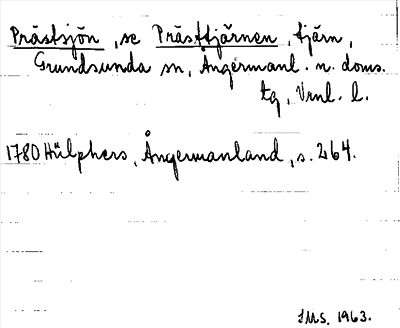 Prästsjön, se Prästtjärnen, tjärn,
Grundsunda sn, Ångermanl. n. doms.
tg, Vrnl. l.
1780 Hülphers, Ångermanland, s. 264.
IMS. 1963.